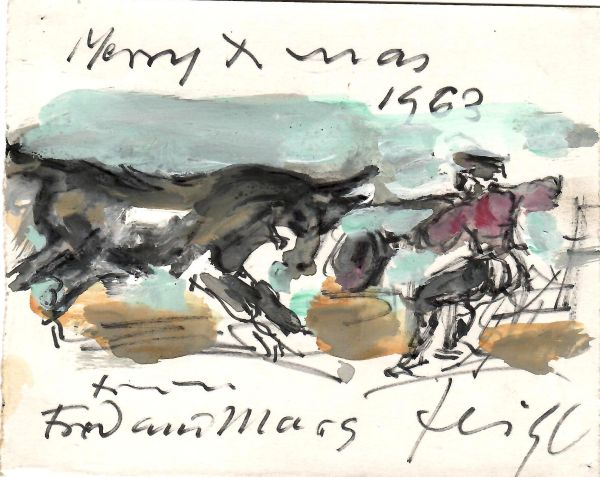 Merry Xmas
1963
from
Fred and Marg Feigl